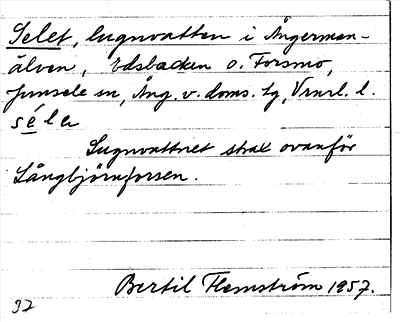 Selet, lugnvatten i Ångerman-
älven, Edsbacken o. Forsmo,
Junsele sn, Ång. v. doms. tg, Vrnrl. l.
séla
Lugnvattnet strax ovanför
Långbjörnforsen.
Bertil Flemström 1957.
37